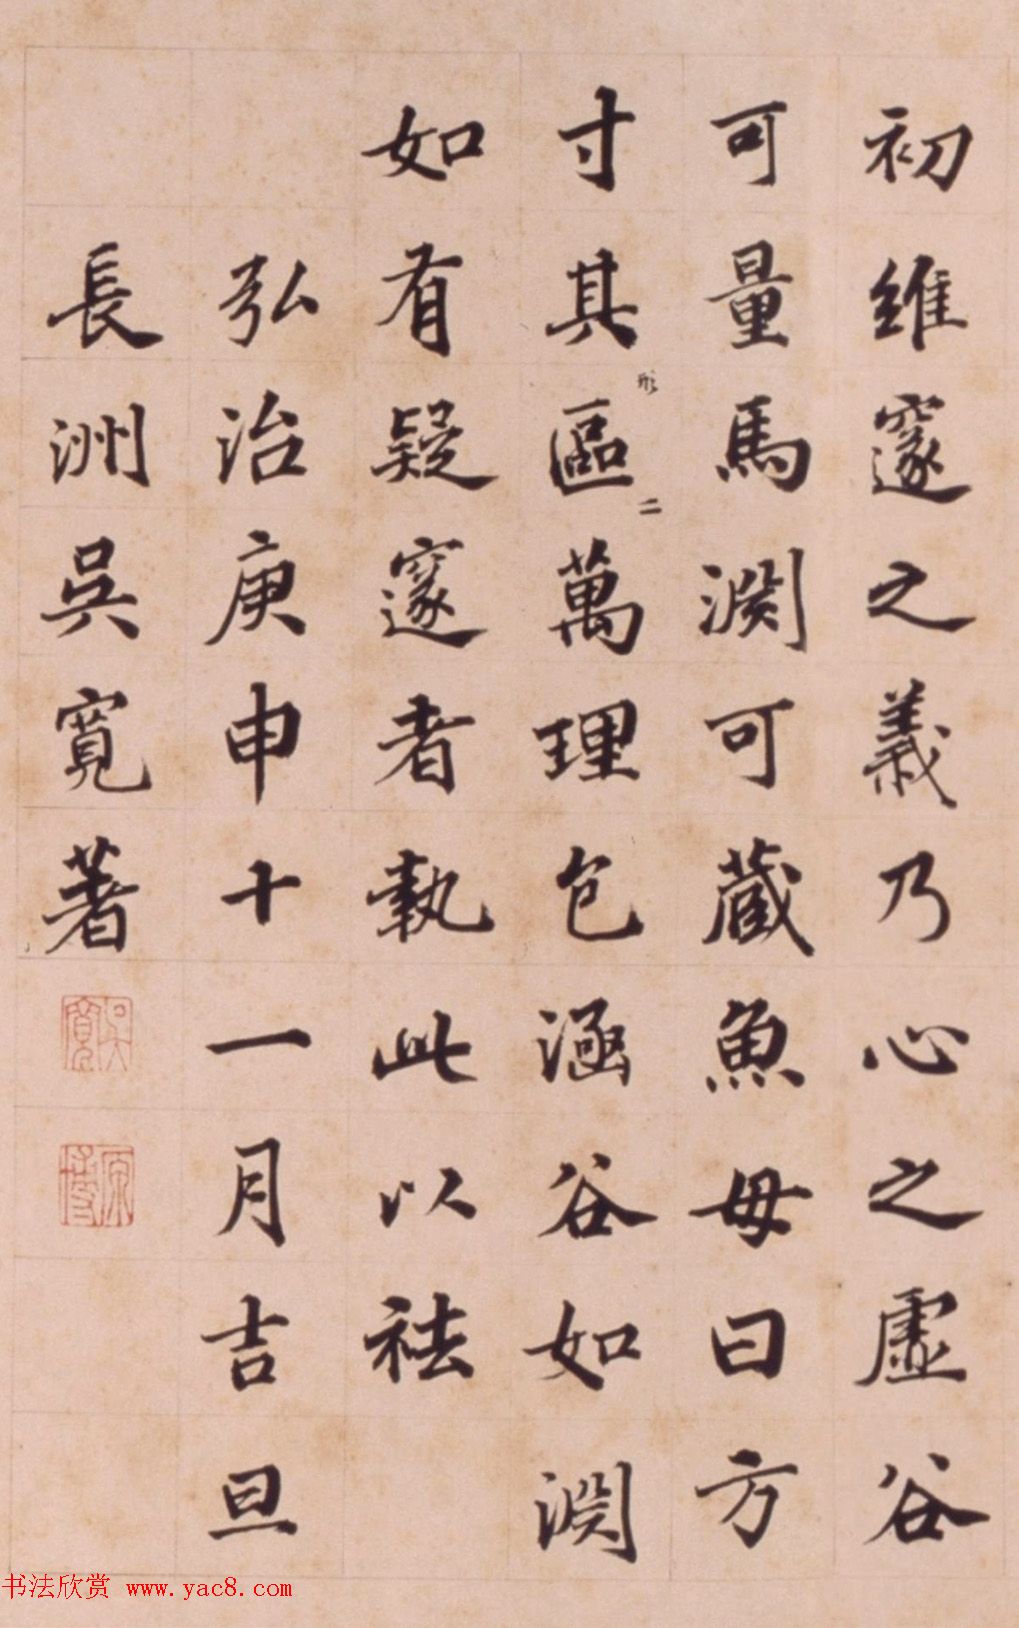 初維邃之義乃心之虛谷
可量馬淵可藏魚毋曰方
寸其區萬理包涵谷如淵
形
二
如有疑邃者執此以祛
弘治庚申十一月吉旦
長洲吳寬著
吳寬
原博
书法欣赏 www.yac8.com